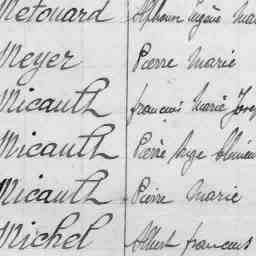 Metouard Alphonse Eugène Mar
Meyer Pierre Marie
Micauth francois Marie Josep
Micauth Pierre Ange
Micauth Pierre Marie
Michel Albert francois